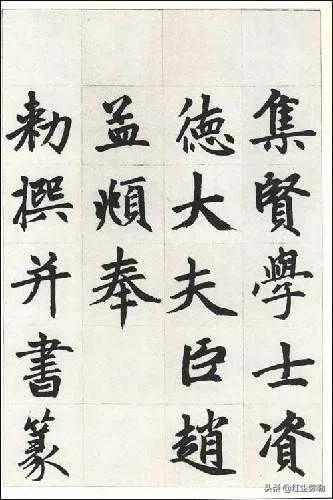 集賢學士資
德大夫臣趙
孟頫奉
勅撰并書篆
头条 @红尘弥勒